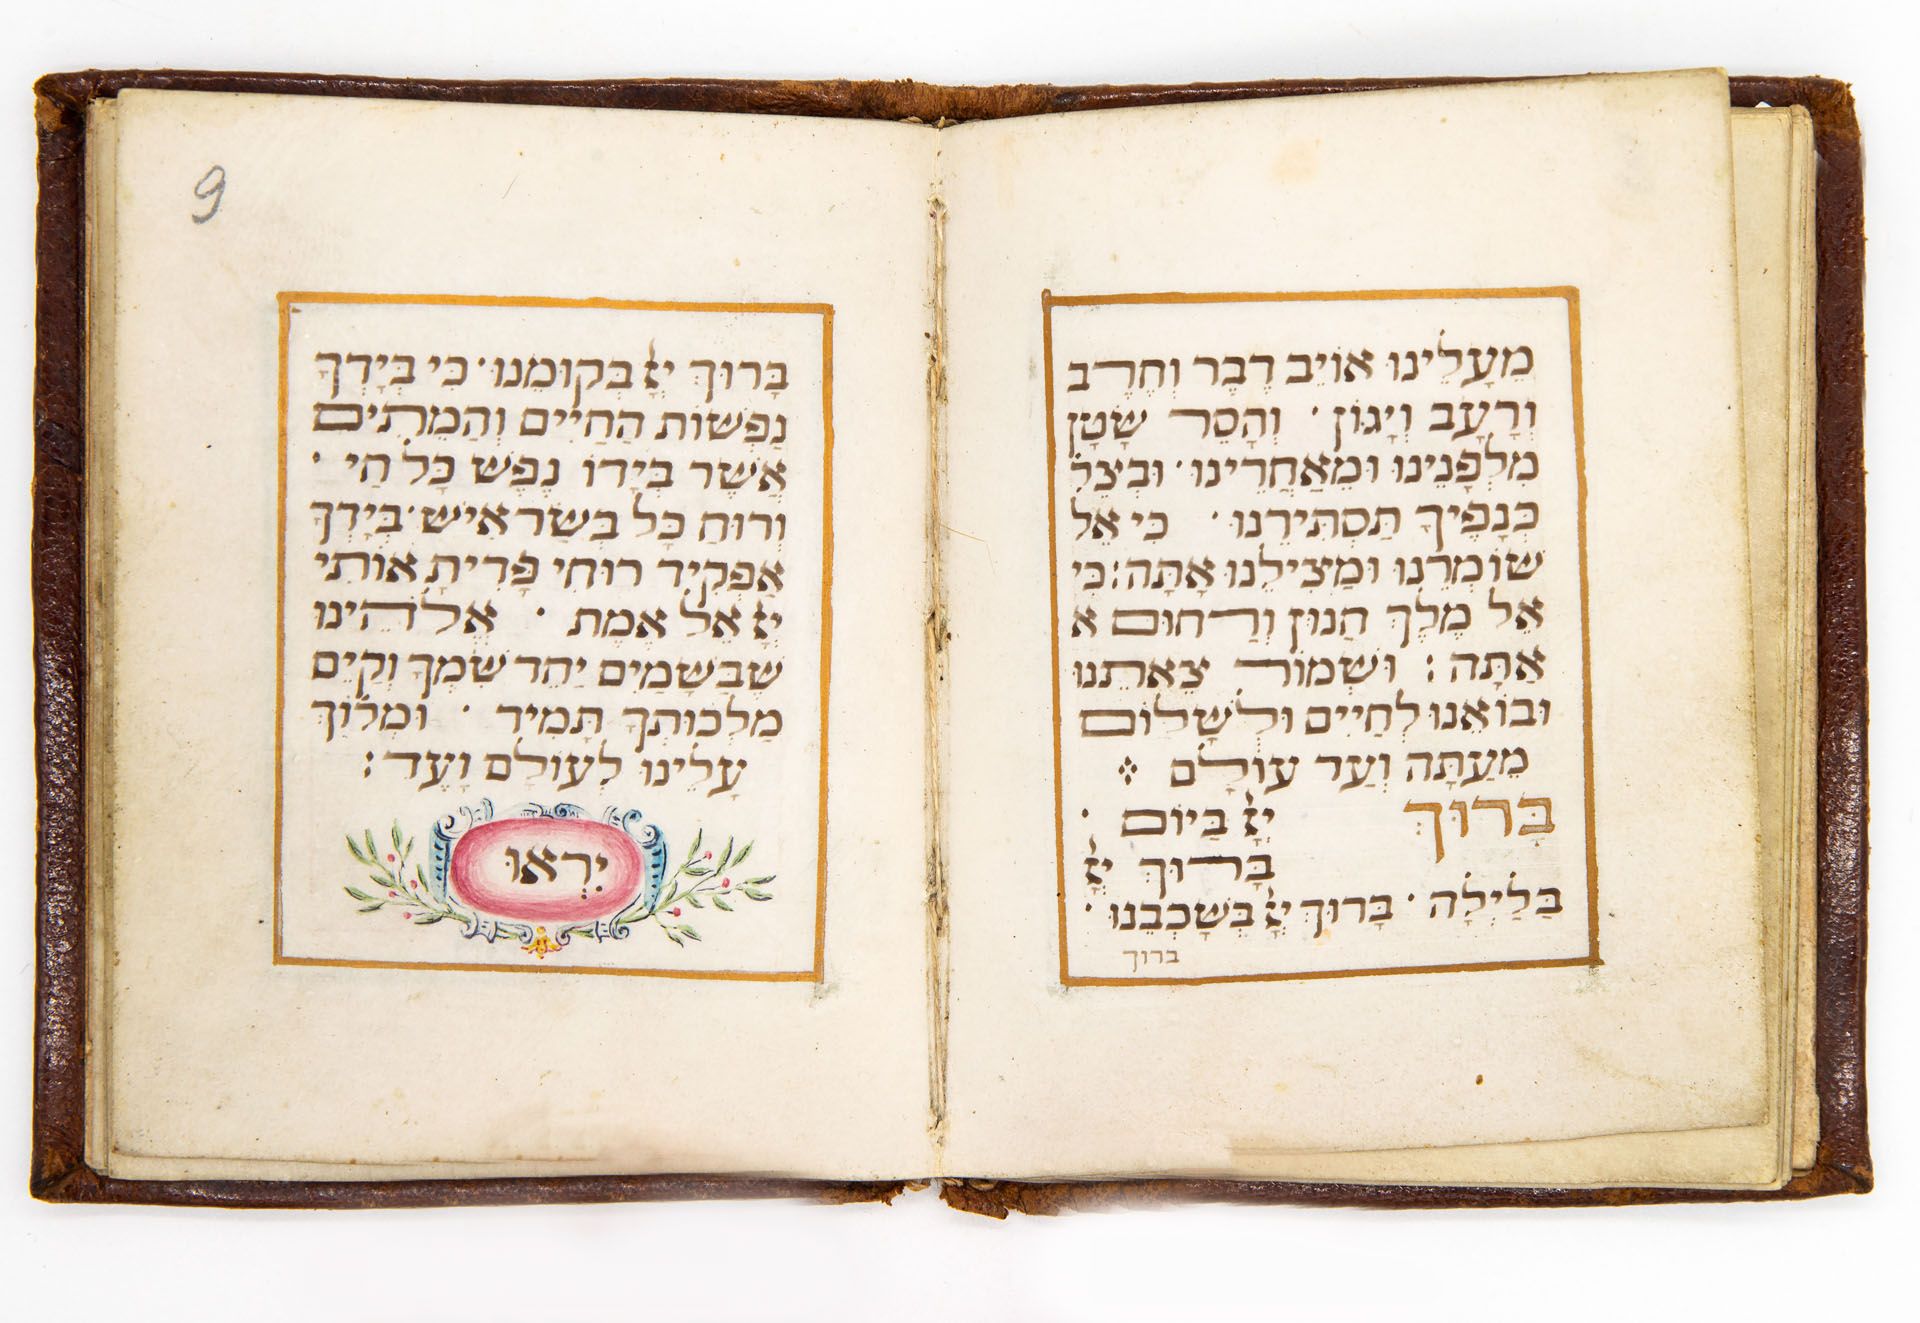 מֵעָלֵינוּ אוֹיֵב דֶבֶר וְחֶרֶב
וְרָעָב וְיָגוֹן · וְהָסֵר שָׂטָן
מִלְפָנֵינוּ וּמֵאַחֲרֵינוּ · וּבְצֵל
כְּנָפֶיךָ תַּסְתִּירֵנוּ · כִּי אֵל
שׁוֹמְרֵנוּ וּמַצִילֵנוּ אָתָּה: כִּי
אֵל מֶלֶךְ חַנוּן וְרַחוּם א
אַתָּה: וּשְׁמוֹר צֵאתֵנוּ
וּבוֹאֵנוּ לְחַיִים וּלְשָׁלוֹם
מֵעַתָּה וְעַד עוֹלָם
בָּרוּךְ יְיָ בַּיוֹם ·
בָּרוּךְ יְיָ
בַּלַיְלָה · בָּרוּךְ יְיָ בְּשָׁכְבֵנוּ ·
ברוך
9
בָּרוּךְ יְיָ בְּקוּמֵנוּ · כִּי בְּיָדְךָ
נַפְשׁוֹת הַחַיִים וְהַמֵתִים
אֲשֶׁר בְּיָדוֹ נֶפֶשׁ כָּל חַי ·
וְרוּחַ כָּל בְּשַׂר אִישׁ · בְּיָדְךָ
אַפְקִיד רוּחִי פָּדִיתָ אוֹתִי
יְיָ אֵל אֱמֶת · אֱלֹהֵינוּ
שֶׁבַּשָׁמַיִם יַחֵד שִׁמְךָ וְקַיֵם
מַלְכוּתְךָ תָּמִיד · וּמְלוֹךְ
עָלֵינוּ לְעוֹלָם וָעֶד:
יִרְאוּ